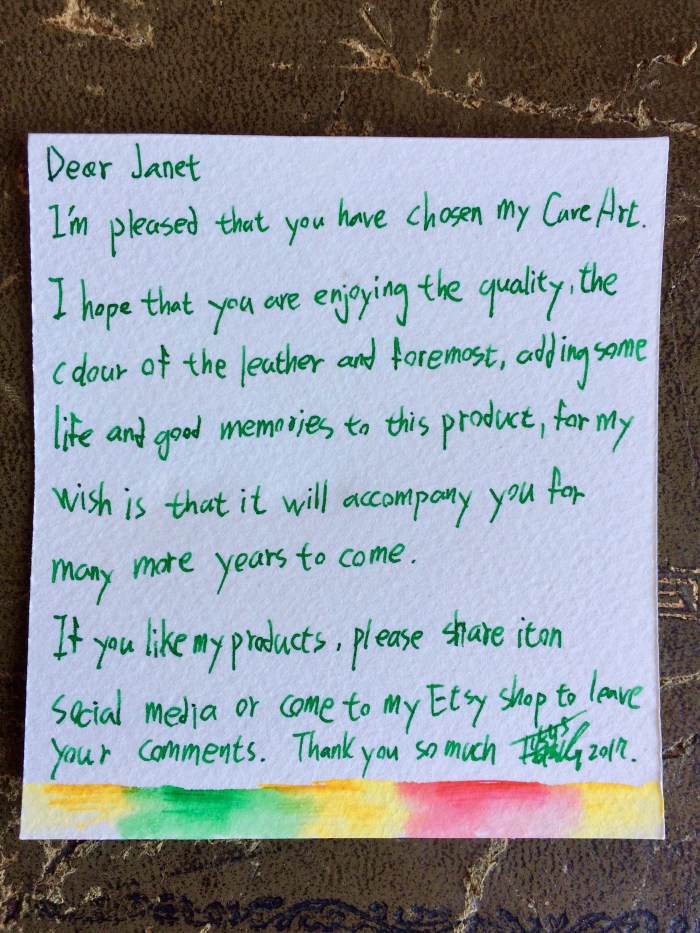 Dear Janet
I'm pleased that you have chosen my Cave Art.
I hope that you are enjoying the quality, the
colour of the leather and foremost, adding some
life and good memories to this product, for my
wish is that it will accompany you for
many more years to come.
If you like my products, please share it on
social media or come to my Etsy shop to leave
your comments. Thank you so much 2017.